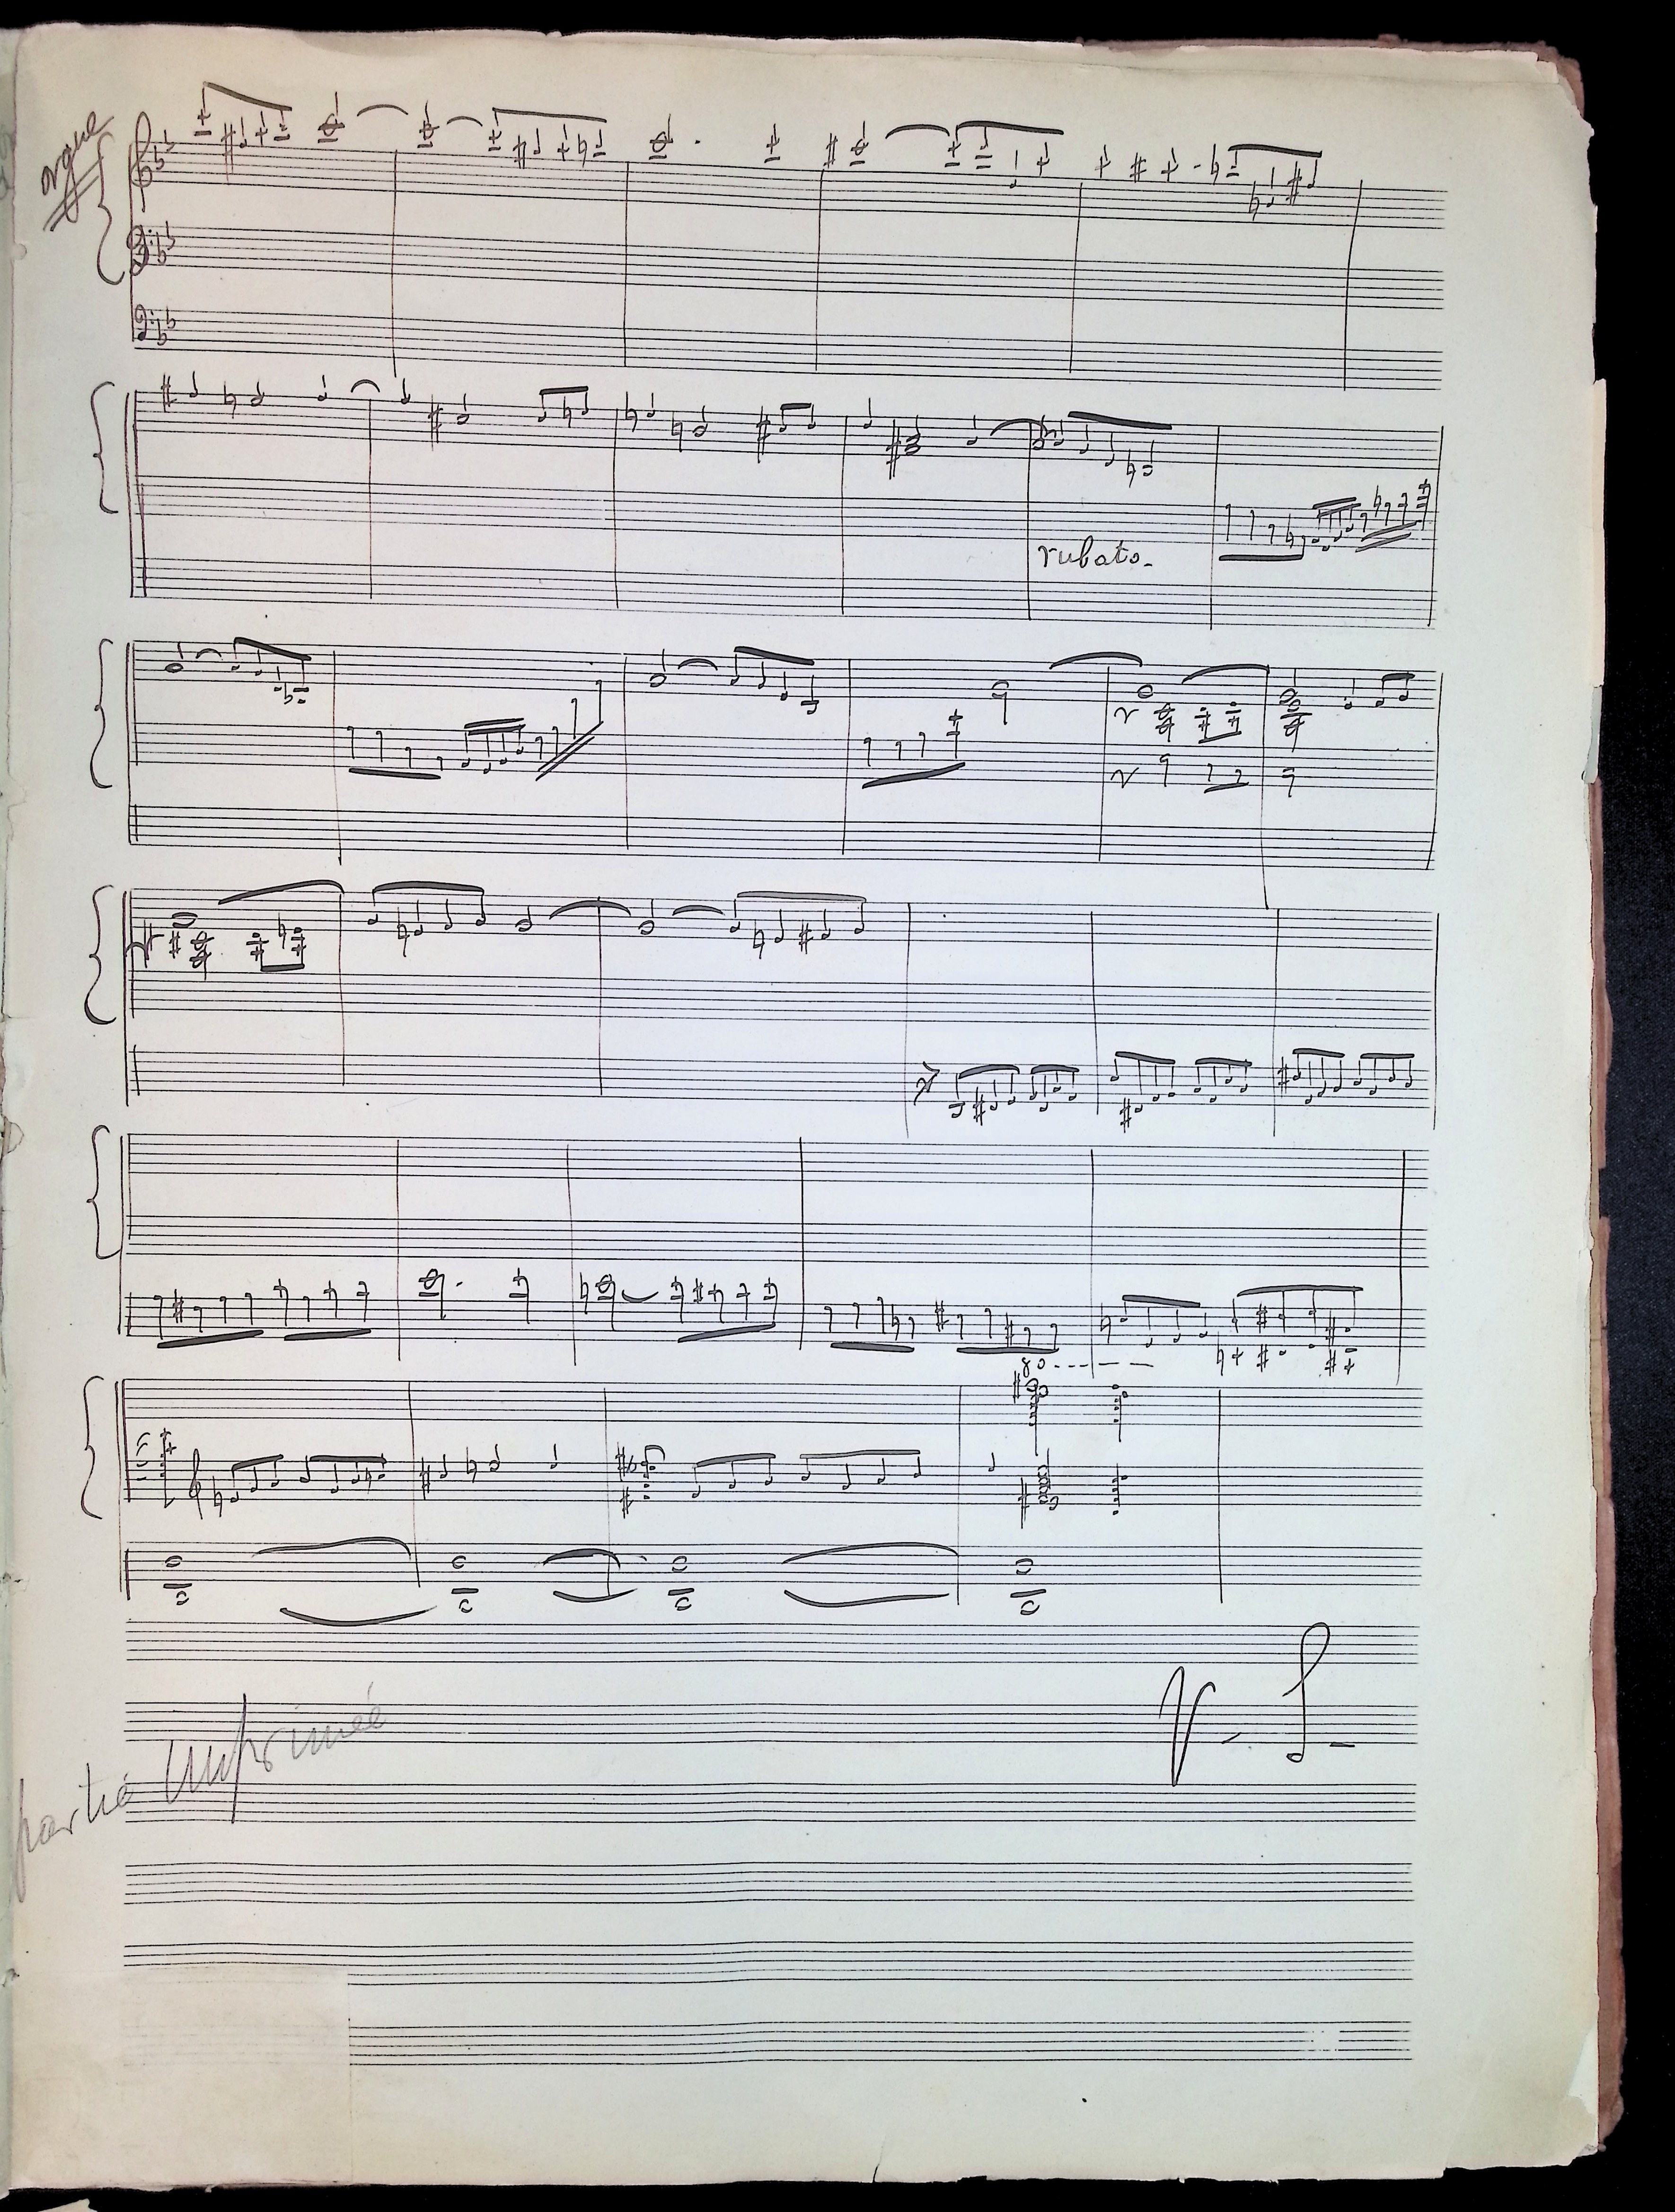 orgue
rubato-
8o-----
V - S -
partie imprimée